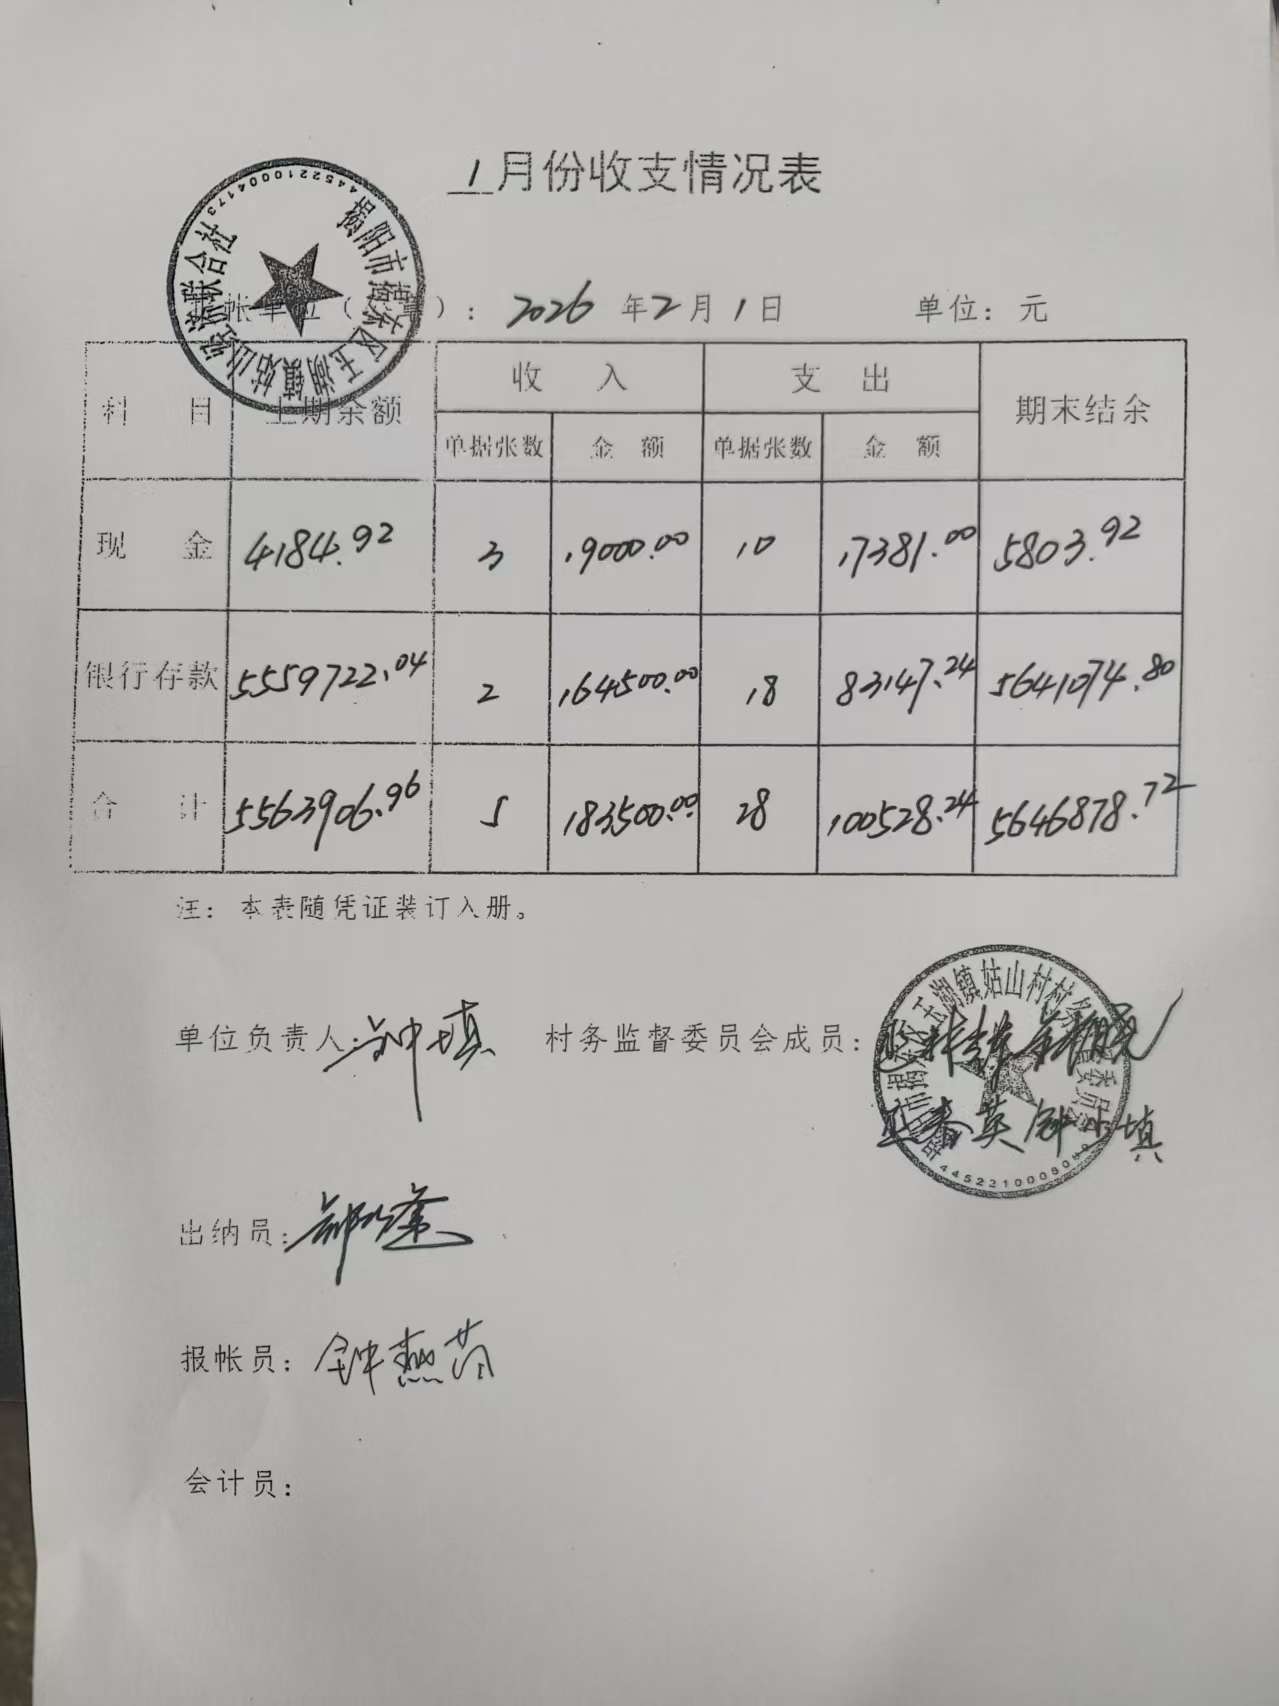 1月份收支情况表
揭阳市揭东区玉湖镇姑山经济联合社
4452210004173
帐单位（ 章）：2026年2月1日 单位：元
科目 上期余额 收入 支出 期末结余
单据张数 金额 单据张数 金额
现金 4184.92 3 19000.00 10 17381.00 5803.92
银行存款 5559722.04 2 164500.00 18 83147.24 5641074.80
合计 5563906.96 5 183500.00 28 100528.24 5646878.72
注：本表随凭证装订入册。
单位负责人： 村务监督委员会成员：
玉湖镇姑山村村务监督委员会
春英
出纳员：
报帐员：钟燕芬
会计员：